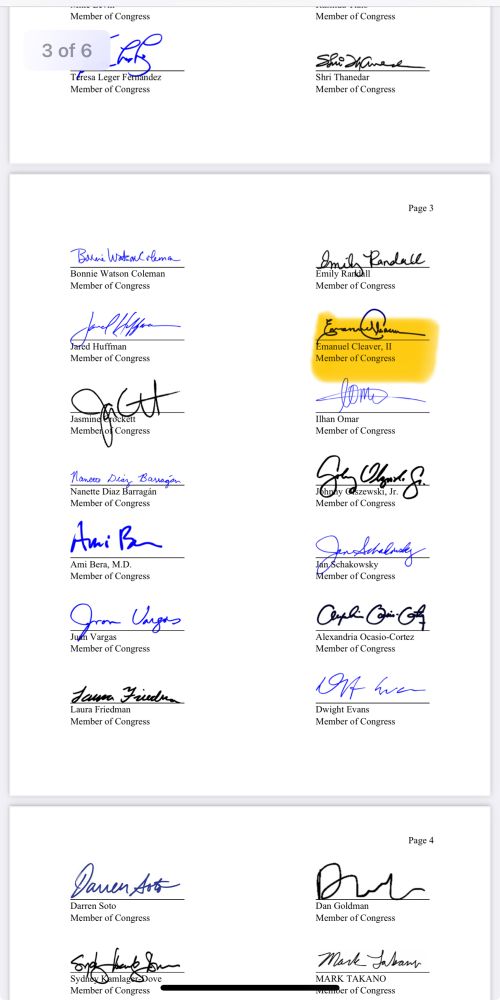 Member of Congress
Member of Congress
3 of 6
Teresa Leger Fernández
Member of Congress
Shri Thanedar
Shri Thanedar
Member of Congress
Page 3
Bonnie Watson Coleman
Bonnie Watson Coleman
Member of Congress
Emily Randall
Emily Randall
Member of Congress
Jared Huffman
Jared Huffman
Member of Congress
Emanuel Cleaver, II
Member of Congress
Jasmine Crockett
Member of Congress
Ilhan Omar
Member of Congress
Nanette Diaz Barragán
Nanette Diaz Barragán
Member of Congress
Johnny Olszewski, Jr.
Member of Congress
Ami Bera
Ami Bera, M.D.
Member of Congress
Jan Schakowsky
Jan Schakowsky
Member of Congress
Juan Vargas
Juan Vargas
Member of Congress
Alexandria Ocasio-Cortez
Member of Congress
Laura Friedman
Laura Friedman
Member of Congress
Dwight Evans
Member of Congress
Page 4
Darren Soto
Darren Soto
Member of Congress
Dan Goldman
Member of Congress
Sydney Kamlager-Dove
Member of Congress
Mark Takano
MARK TAKANO
Member of Congress